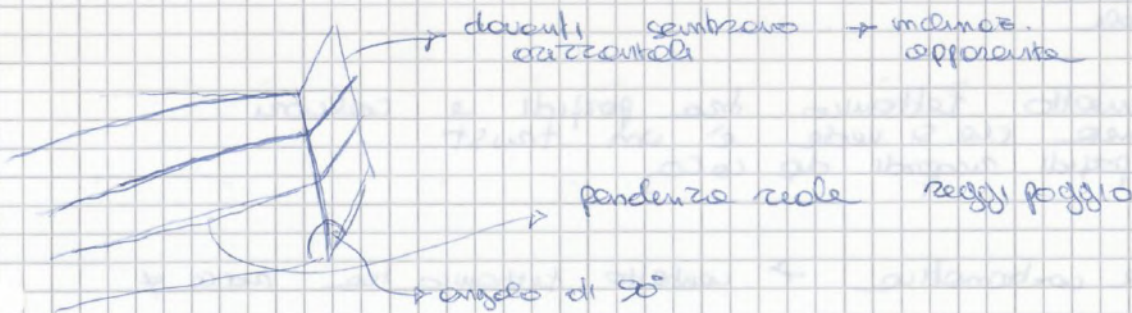 davanti sembrano → inclinaz.
orizzontali apparente
pendenza reale reggipoggio
→ angolo di 90°